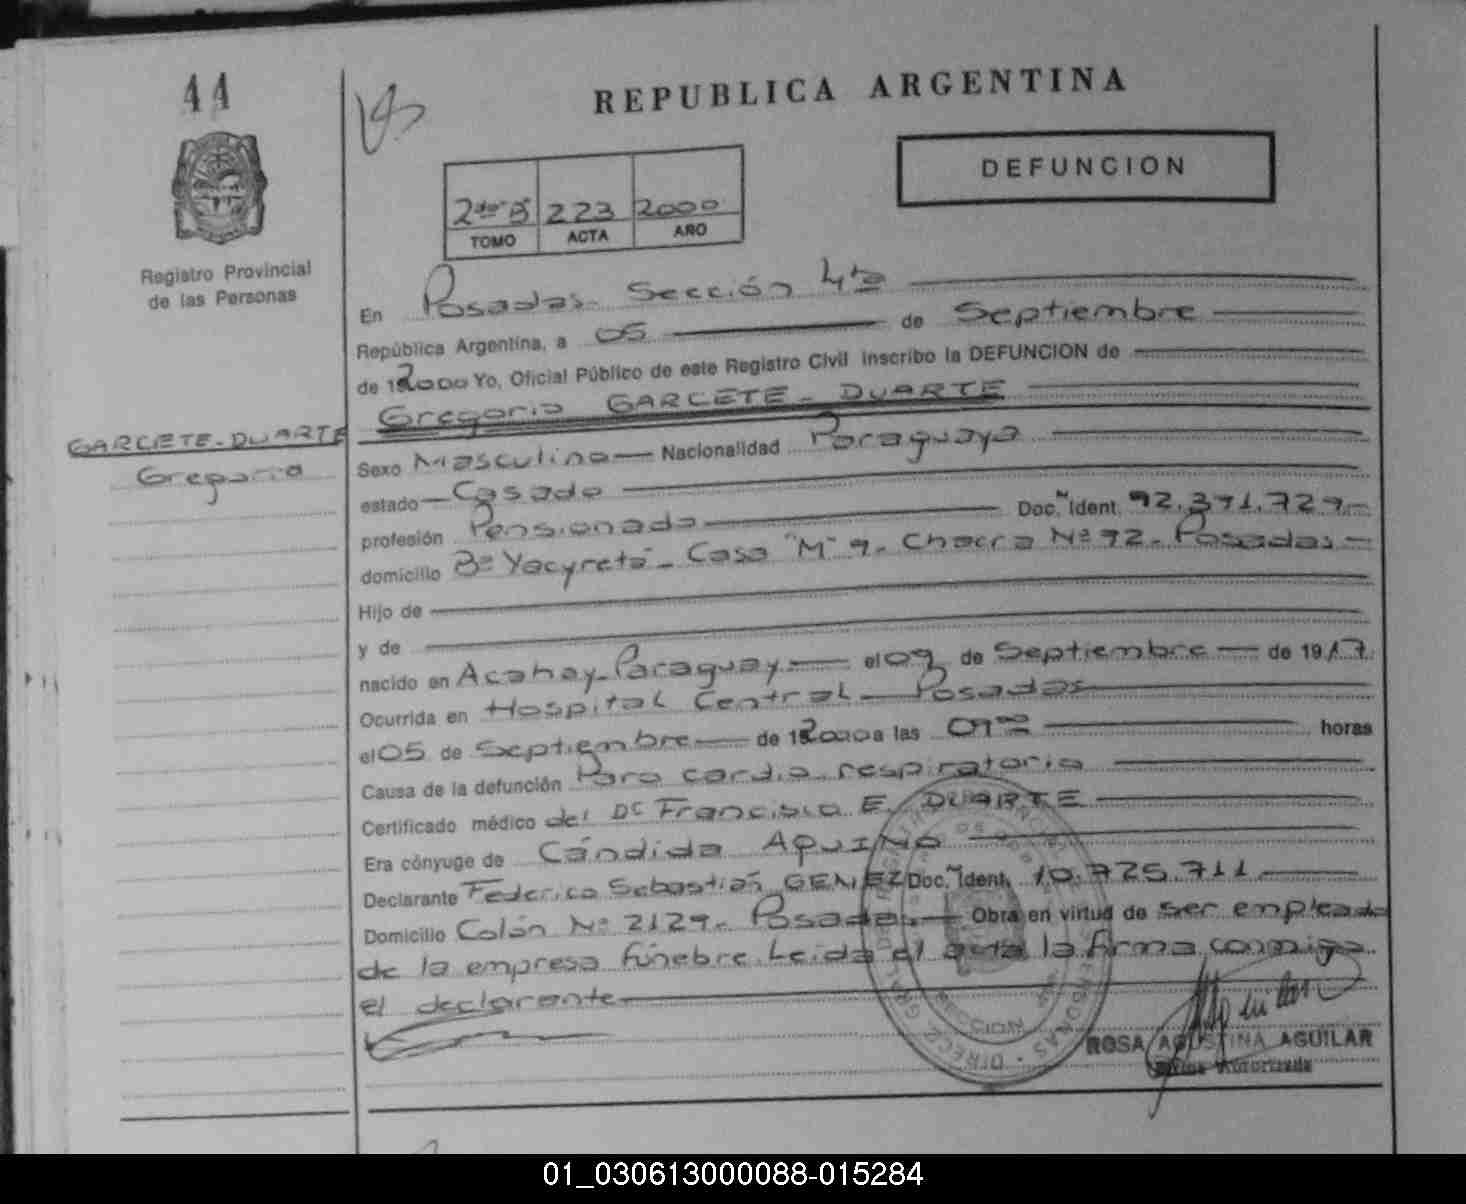 44
REPUBLICA ARGENTINA
DEFUNCION
2do B 223 2000
TOMO ACTA AÑO
Registro Provincial
de las Personas
En Posadas - Sección 4ta
República Argentina, a 05 de Septiembre
de 2000 Yo, Oficial Público de este Registro Civil inscribo la DEFUNCION de
Gregorio GARCETE - DUARTE
GARCETE - DUARTE
Gregorio
Sexo Masculino Nacionalidad Paraguaya
estado Casado
profesión Pensionado Doc. Ident. 92.391.729.-
domicilio Bº Yacyretá - Casa "M" 9. Chacra Nº 92 - Posadas -
Hijo de
y de
nacido en Acahay - Paraguay el 09 de Septiembre de 1917
Ocurrida en Hospital Central - Posadas
el 05 de Septiembre de 2000 a las 01 00 horas
Causa de la defunción Paro cardio respiratorio
Certificado médico del Dr Francisco E. DUARTE
Era cónyuge de Cándida AQUINO
Declarante Federico Sebastián GEMEZ Doc. Ident. 10.725.711
Domicilio Colón Nº 2129 - Posadas Obra en virtud de ser empleado
de la empresa fúnebre. Leida el acta la firma conmigo
el declarante
ROSA AGUSTINA AGUILAR
01_030613000088-015284